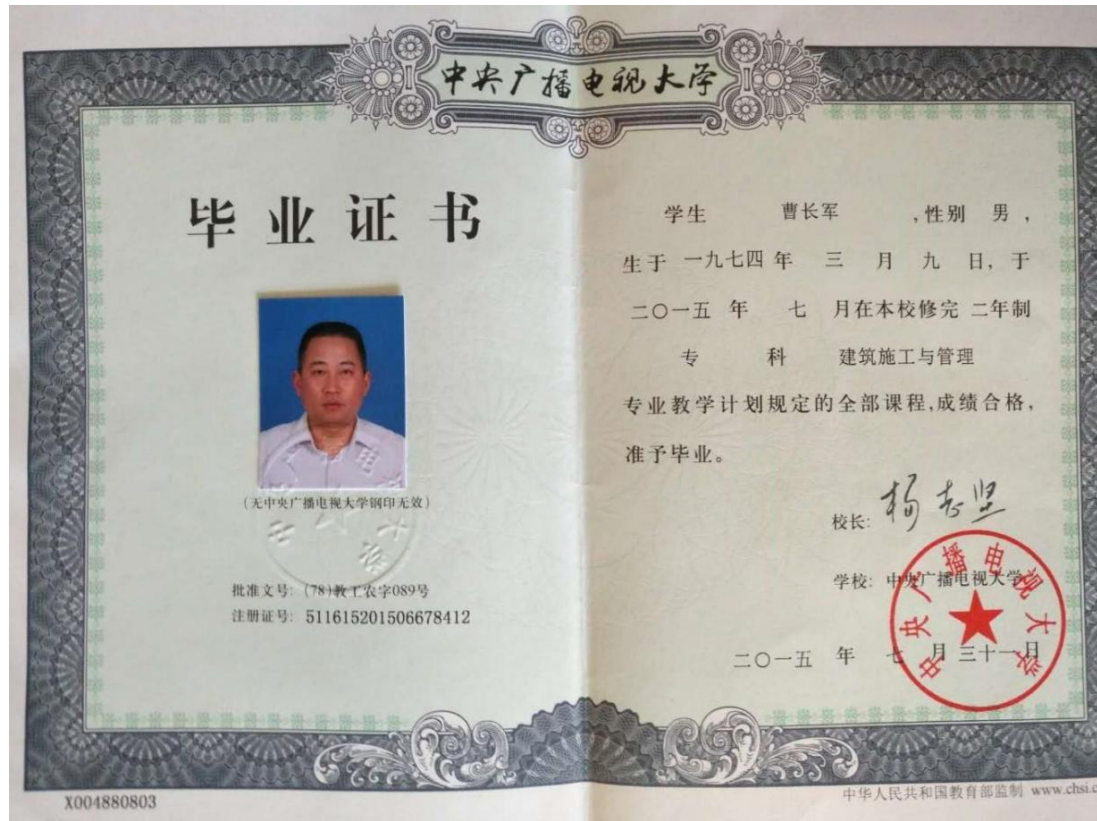 中央广播电视大学
毕业证书
(无中央广播电视大学钢印无效)
批准文号: (78)教工农字089号
注册证号: 511615201506678412
X004880803
学生 曹长军 ,性别 男 ,
生于 一九七四 年 三 月 九 日, 于
二〇一五 年 七 月在本校修完 二年制
专 科 建筑施工与管理
专业教学计划规定的全部课程,成绩合格,
准予毕业。
校长: 杨志坚
学校: 中央广播电视大学
二〇一五 年 七 月 三十一日
中央广播电视大学
中华人民共和国教育部监制 www.chsi.c